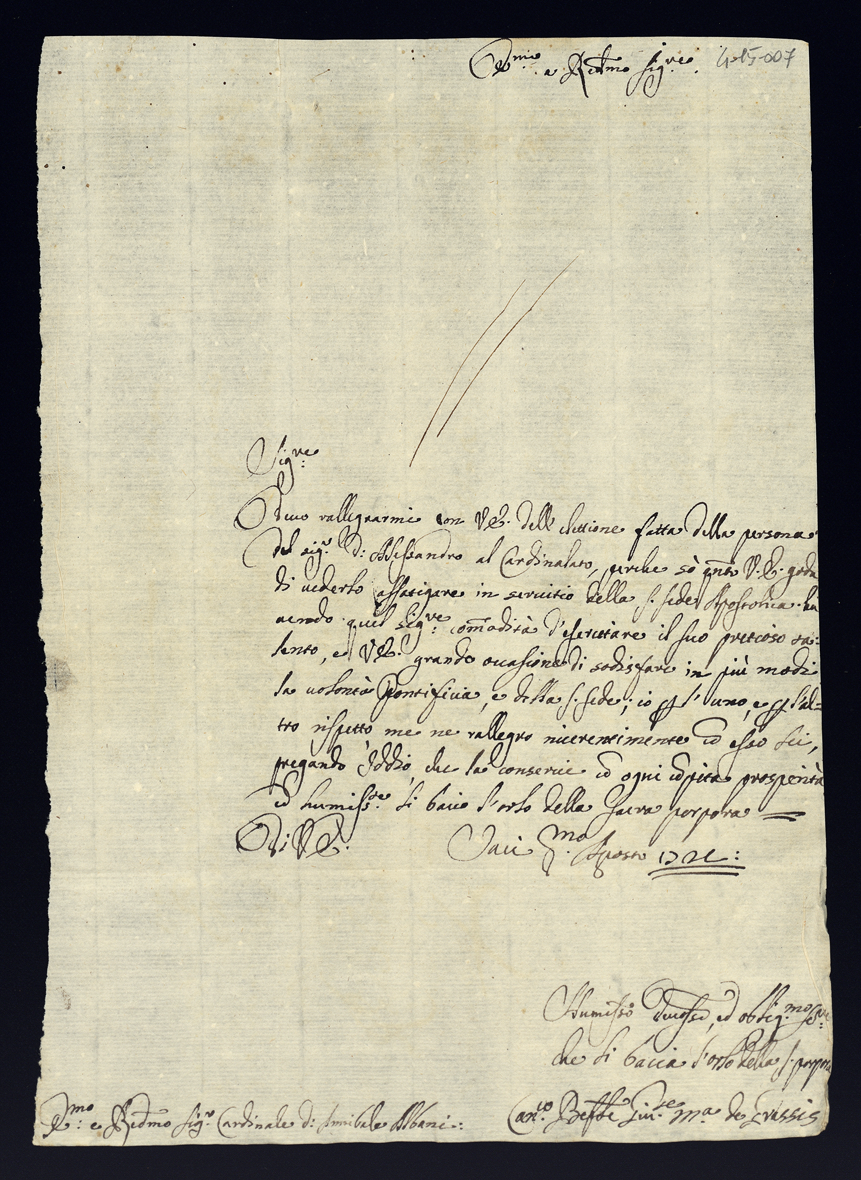 Em.mo e Re.dmo Sig.re
4-15-007
Sig.re
Devo rallegrarmi con V.E. dell'elettione fatta della persona
del sig.r D. Alessandro al Cardinalato, perche sò qnto V.E. goda
di vederlo affatigare in servitio della S. Sede Apostolica. ha
uendo quel Sig.re comodità d'esercitare il suo pretioso ta:
lento, ed V.E. grande occasione di sodisfare in più modi
la volontà Pontificia, e della S. Sede; io p l'uno, e p l'al=
tro rispetto me ne rallegro riverentimente cō esso lei,
pregando Iddio, che la conservi cō ogni cōpita prosperità
ed humiliss.te li bacio l'orlo della Sacra porpora
Di V.E. Jaci P.mo Agosto 1721:
Humilisso Devosso, ed obblig.mo Se.re
che li bacia l'orlo della S. porpora
E.mo e Re.dmo Sig.r Cardinale di Annibale Albani:
Can.co Gius.e M.a de Grassis